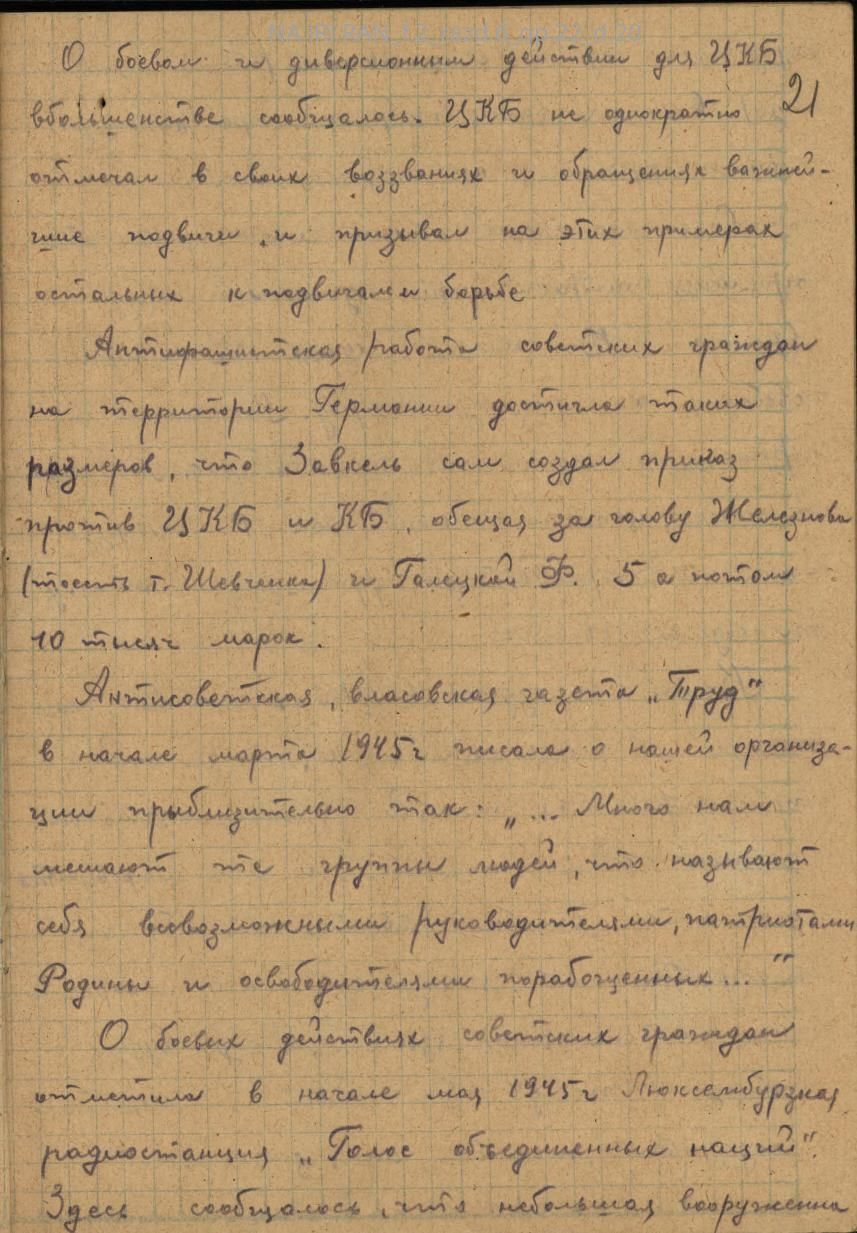 О боевом и диверсионным действии для ЦКБ
вбольшенстве сообщалось. ЦКБ не однократно
21
отмечал в своих воззваниях и обращениях важней-
шие подвиги и призывал на этих примерах
остальных к подвигам и борьбе
Антифашистская работа советских граждан
на территории Германии достигла таких
размеров, что Завкель сам создал приказ
против ЦКБ и КБ, обещая за голову Железнова
(тоесть т. Шевченка) и Галецкой Ф. 5 а потом
10 тысяч марок.
Антисоветская, власовская газета „Труд"
в начале марта 1945г писала о нашей организа-
ции прыблизительно так: „... Много нам
мешают те группы людей, что называют
себя всевозможными руководителями, патриотами
Родины и освободителями порабощенных..."
О боевых действиях советских граждан
отметила в начале мая 1945г Люксембурзкая
радиостанция „Голос объединенных наций".
Здесь сообщалось, что небольшая вооруженна